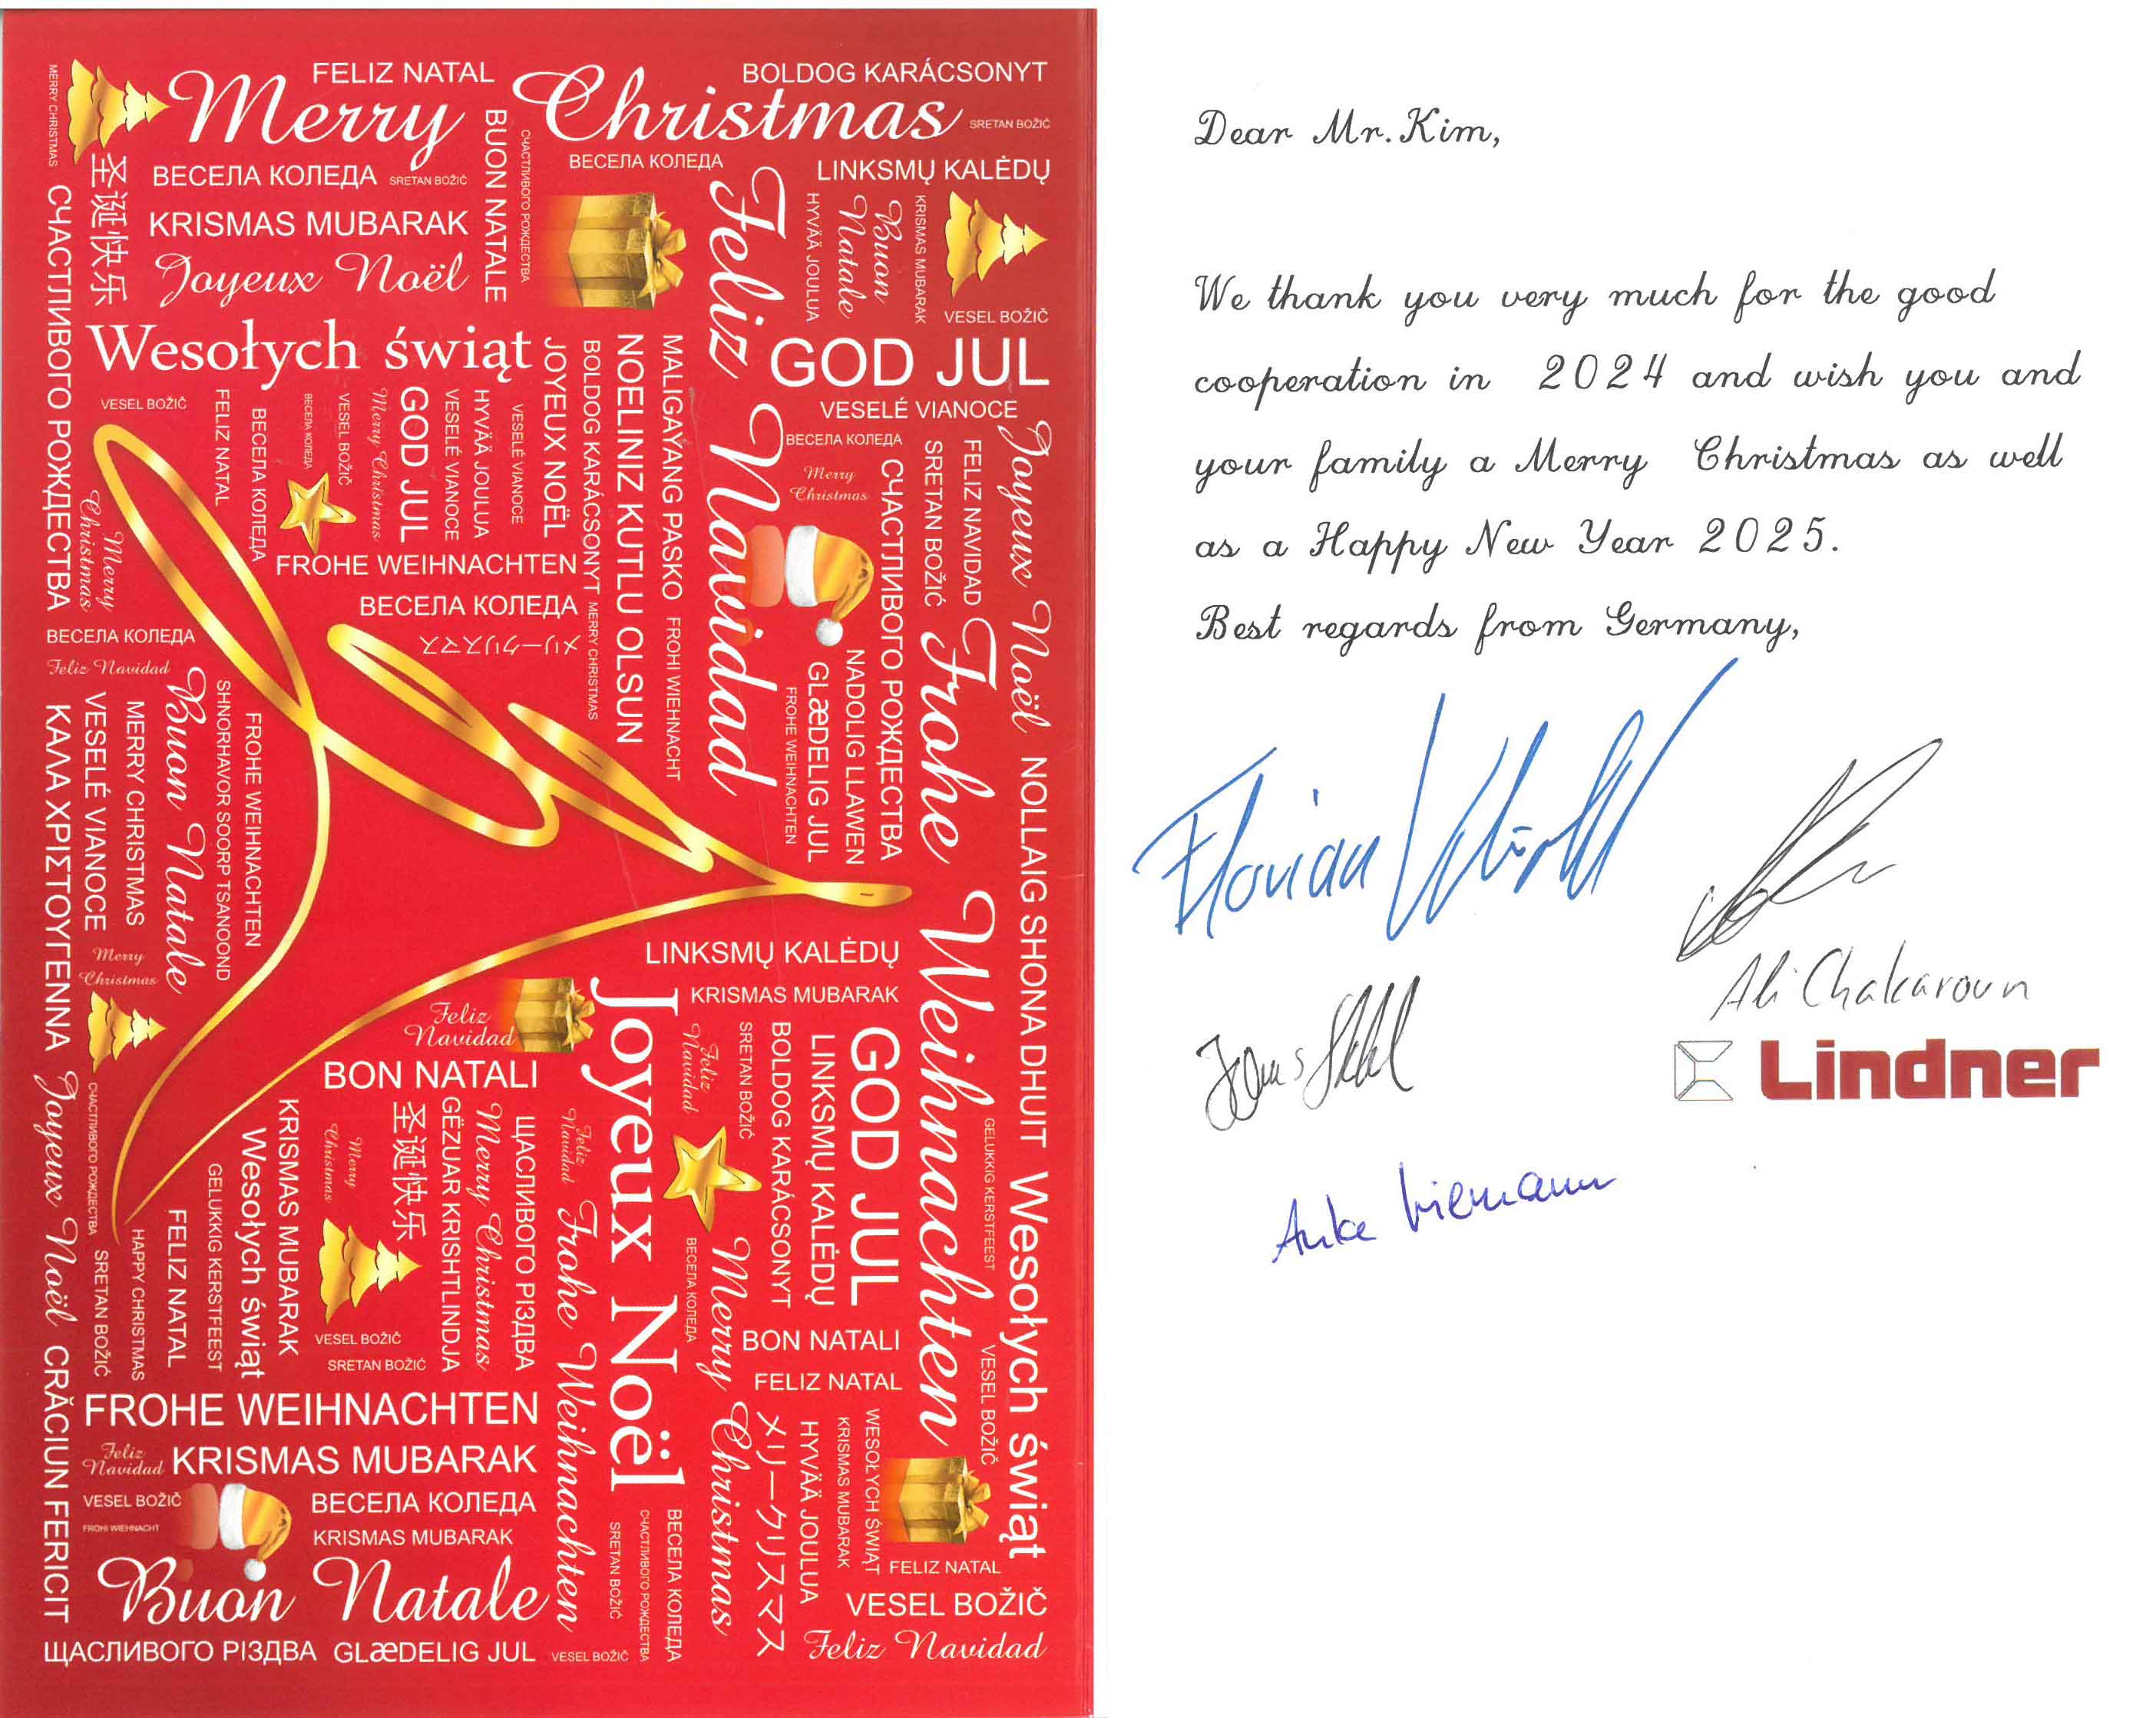 FELIZ NATAL
BOLDOG KARÁCSONYT
Merry Christmas
SRETAN BOŽIĆ
MERRY CHRISTMAS
ВЕСЕЛА КОЛЕДА
SRETAN BOŽIĆ
BUON NATALE
СЧАСТЛИВОГО РОЖДЕСТВА
ВЕСЕЛА КОЛЕДА
LINKSMŲ KALĖDŲ
圣诞快乐
KRISMAS MUBARAK
Joyeux Noël
Feliz Navidad
HYVÄÄ JOULUA
Buon Natale
KRISMAS MUBARAK
VESEL BOŽIČ
СЧАСТЛИВОГО РОЖДЕСТВА
Wesołych świąt
GOD JUL
VESELÉ VIANOCE
VESEL BOŽIČ
FELIZ NATAL
ВЕСЕЛА КОЛЕДА
ВЕСЕЛА КОЛЕДА
VESEL BOŽIČ
Merry Christmas
GOD JUL
VESELÉ VIANOCE
HYVÄÄ JOULUA
VESELÉ VIANOCE
JOYEUX NOËL
BOLDOG KARÁCSONYT
NOELINIZ KUTLU OLSUN
MALIGAYANG PASKO
ВЕСЕЛА КОЛЕДА
Merry
Christmas
СЧАСТЛИВОГО РОЖДЕСТВА
SRETAN BOŽIĆ
FELIZ NAVIDAD
Joyeux Noël
Merry
Christmas
FROHE WEIHNACHTEN
ВЕСЕЛА КОЛЕДА
メリークリスマス
MERRY CHRISTMAS
FROHI WIEHNACHT
ВЕСЕЛА КОЛЕДА
Feliz Navidad
ΚΑΛΑ ΧΡΙΣΤΟΥΓΕΝΝΑ
VESELÉ VIANOCE
MERRY CHRISTMAS
Buon Natale
SHNORHAVOR SOORP TSANOOND
FROHE WEIHNACHTEN
FROHE WEIHNACHTEN
GLæDELIG JUL
NADOLIG LLAWEN
Frohe Weihnachten
NOLLAIG SHONA DHUIT
Merry
Christmas
LINKSMŲ KALĖDŲ
KRISMAS MUBARAK
Feliz
Navidad
BON NATALI
Joyeux Noël
Feliz
Navidad
SRETAN BOŽIĆ
BOLDOG KARÁCSONYT
LINKSMŲ KALĖDŲ
GOD JUL
GELUKKIG KERSTFEEST
Wesołych świąt
Joyeux Noël
СЧАСТЛИВОГО РОЖДЕСТВА
SRETAN BOŽIĆ
HAPPY CHRISTMAS
FELIZ NATAL
GELUKKIG KERSTFEEST
Wesołych świąt
KRISMAS MUBARAK
Merry
Christmas
圣诞快乐
GËZUAR KRISHTLINDJA
Merry Christmas
ЩАСЛИВОГО РІЗДВА
Feliz
Navidad
Frohe Weihnachten
ВЕСЕЛА КОЛЕДА
Merry Christmas
VESEL BOŽIČ
SRETAN BOŽIĆ
BON NATALI
FELIZ NATAL
VESEL BOŽIČ
CRĂCIUN FERICIT
FROHE WEIHNACHTEN
Feliz
Navidad
KRISMAS MUBARAK
VESEL BOŽIČ
FROHI WIEHNACHT
ВЕСЕЛА КОЛЕДА
KRISMAS MUBARAK
SRETAN BOŽIĆ
СЧАСТЛИВОГО РОЖДЕСТВА
ВЕСЕЛА КОЛЕДА
メリークリスマス
HYVÄÄ JOULUA
KRISMAS MUBARAK
WESOŁYCH ŚWIĄT
FELIZ NATAL
Buon Natale
VESEL BOŽIČ
ЩАСЛИВОГО РІЗДВА
GLæDELIG JUL
VESEL BOŽIČ
Feliz Navidad
Dear Mr. Kim,
We thank you very much for the good
cooperation in 2024 and wish you and
your family a Merry Christmas as well
as a Happy New Year 2025.
Best regards from Germany,
Florian
Ali Chakaroun
Lindner
Jonas
Anke